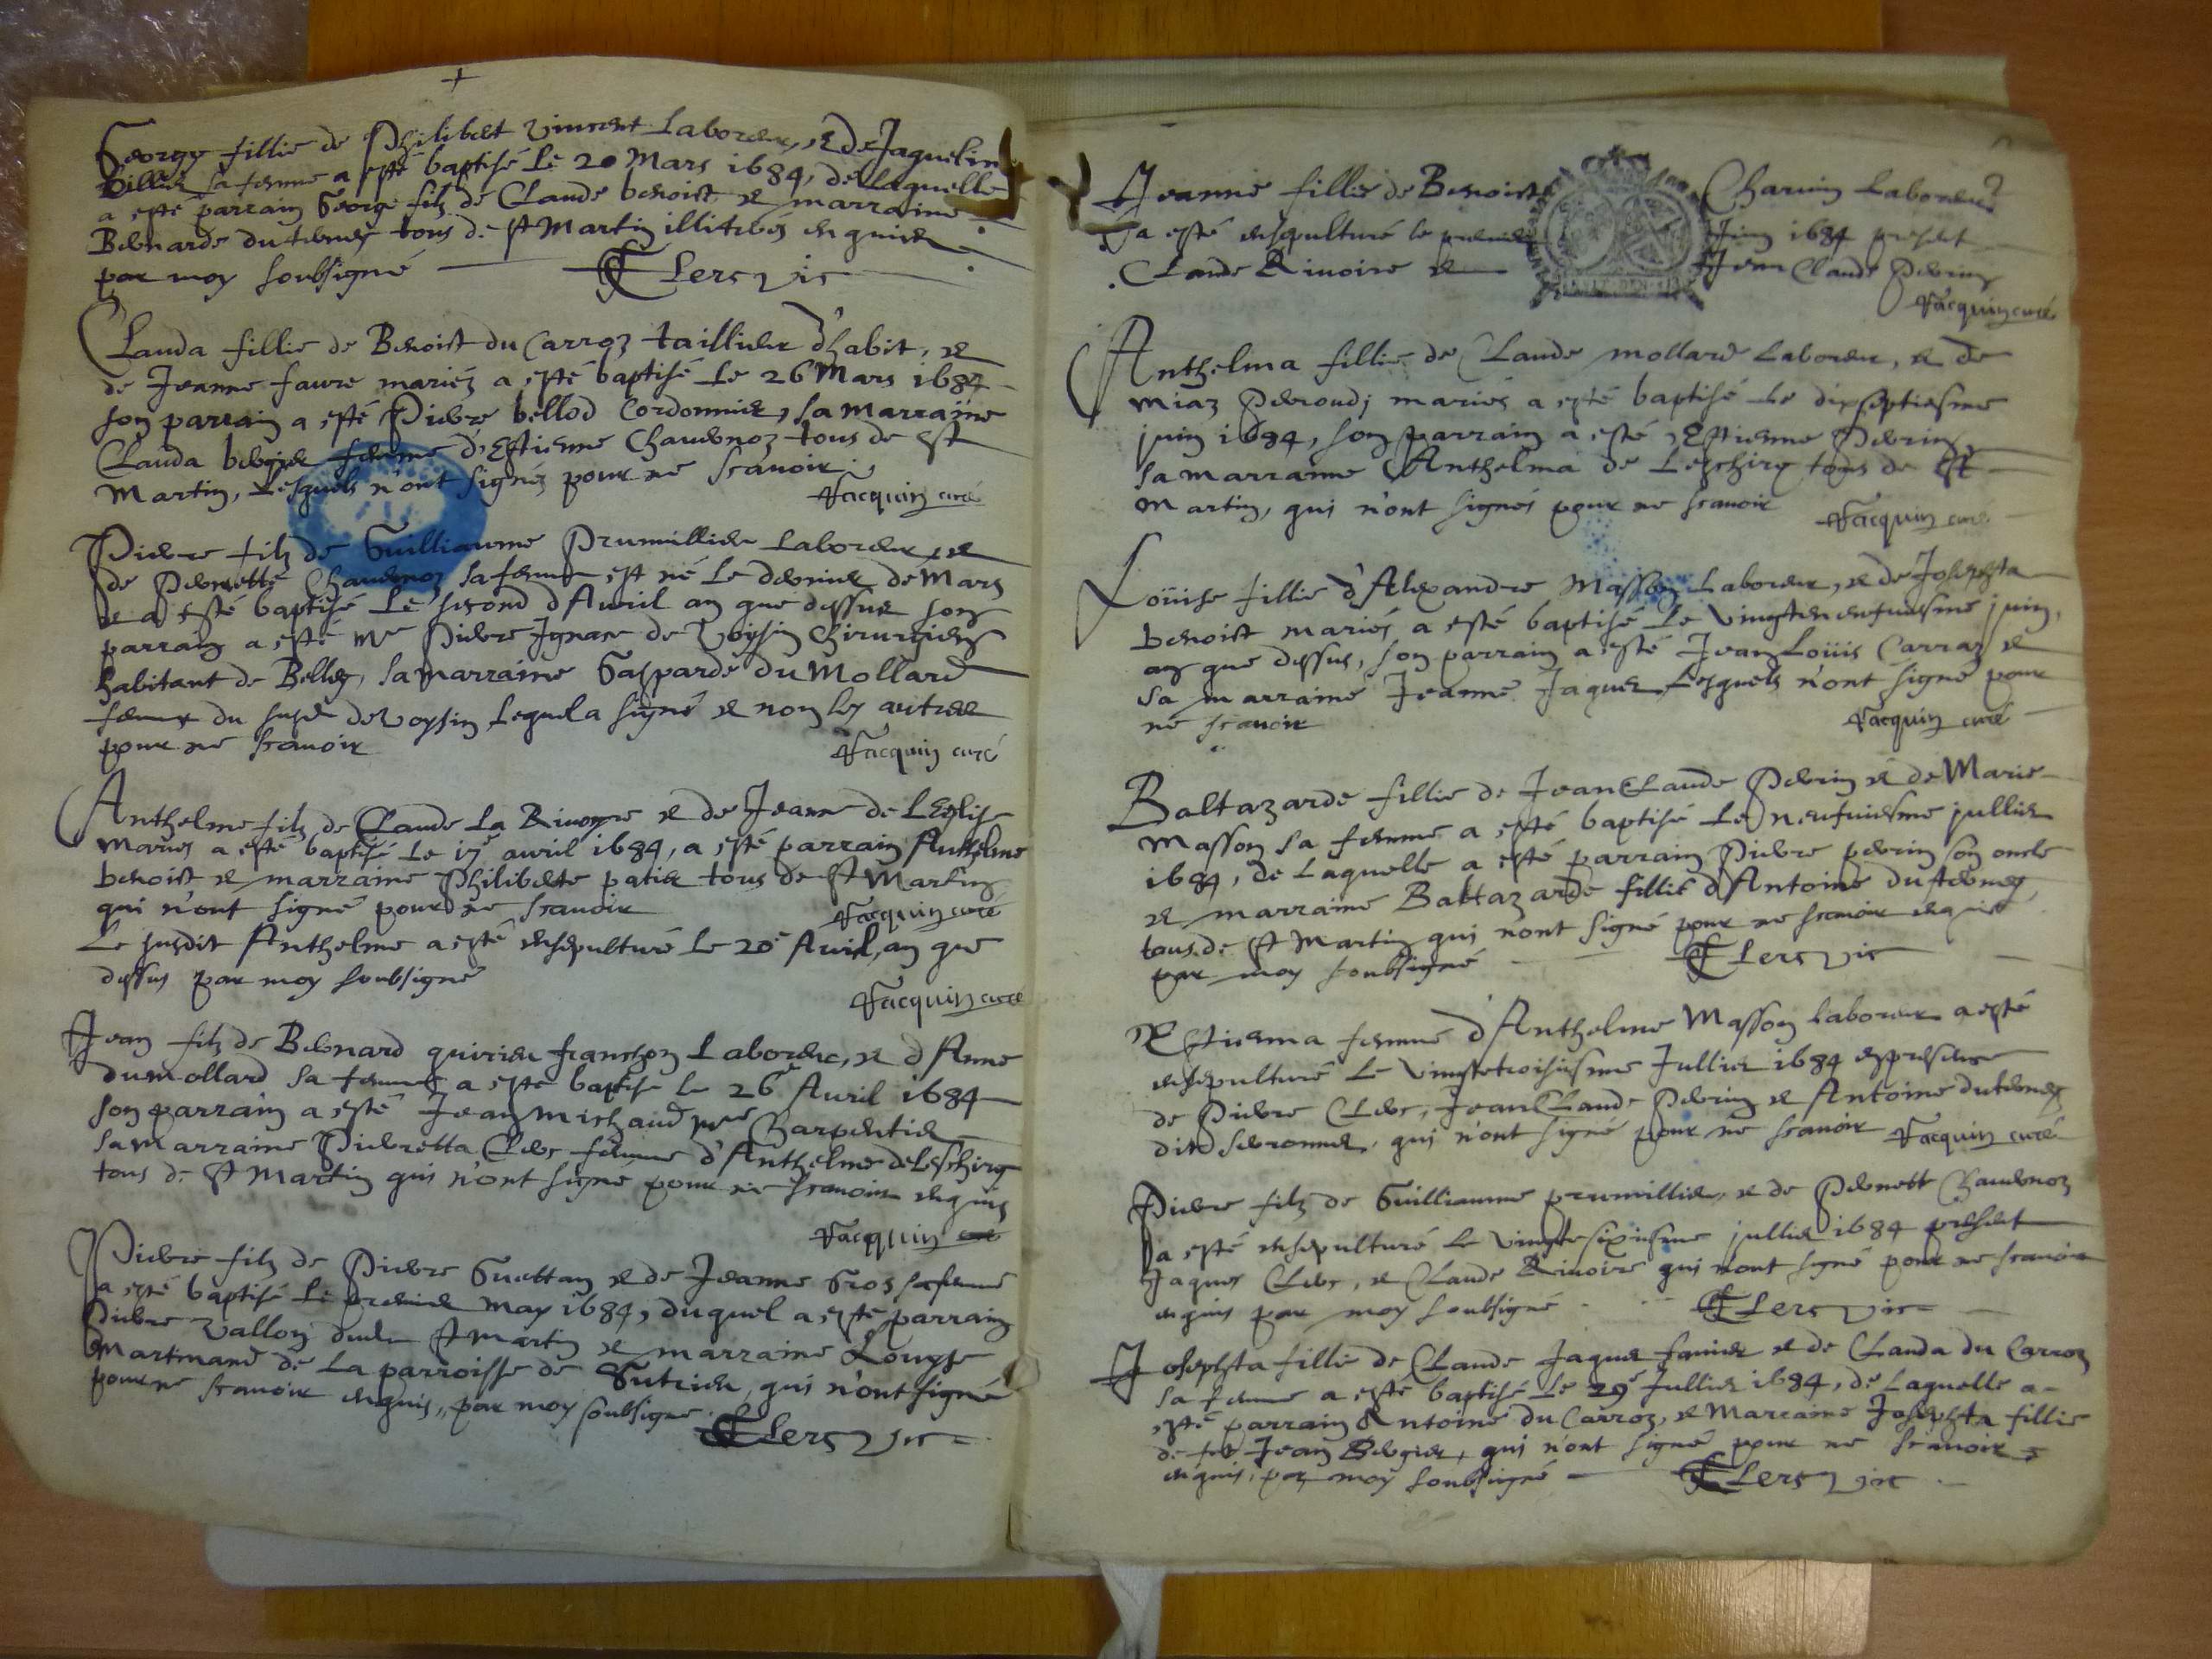 +
George fillie de Philibert Vincent Laboreur, et de Jaqueline
billiet sa femme a esté baptisé Le 20 Mars 1684, de Laquelle
a esté parrain George filz de Claude benoist et marraine
Bernarde du ternez tous de St Martin illiterés enquis
par moy soubsigné Clerc vic
Clauda fillie de Benoist du Carroz taillieur d'habit, et
de Jeanne faure mariéz a esté baptisé Le 26 Mars 1684
son parrain a esté Pierre bellod Cordonnier, sa marraine
Clauda bergier femme d'Estienne Chavenoz tous de St
Martin, Lesquels n'ont signés pour ne scavoir
Jacquin curé
Pierre filz de Guilliaume Prumillieu Laboreur et
de Pernette Chavenoz sa femme est né Le dernier de Mars
et a esté baptisé Le second d'Avril an que dessus son
parrain a esté Mre Pierre Ignace de Voysin Chirurgien
habitant de Belley, sa marraine Gasparde du Mollard
femme du susd de Voysin, Lequel a signé et non les autres
pour ne scavoir Jacquin curé
Anthelme filz de Claude La Rivoyre et de Jeanne de L'Eglise
mariés a esté baptisé Le 17e avril 1684, a esté parrain Anthelme
benoist et marraine Philiberte patier tous de St Martin
qui n'ont signé pour ne scavoir Jacquin curé
Le susdit Anthelme a esté ensepulturé Le 20e Avril, an que
dessus par moy soubsigné
Jacquin curé
Jean filz de Bernard quirieu franchon Laboreur, et d'Anne
du mollard sa femme a esté baptisé le 26e Avril 1684
son parrain a esté Jean Michaud Mre Charpentier
sa marraine Pierretta Clerc femme d'Anthelme de Leschira
tous de St Martin qui n'ont signé pour ne scavoir enquis
Jacquin curé
Pierre filz de Pierre Guettan et de Jeanne Gros sa femme
a esté baptisé Le premier May 1684, duquel a esté parrain
Pierre Vallon dud St Martin et marraine Louyse
Martinand de La parroisse de Gutrieu, qui n'ont signé
pour ne scavoir enquis, par moy soubsigné
Clerc vic
Jeanne fillie de Benoist Charvin Laboreur
a esté ensepulturé le premier Juin 1684 present
Claude Rivoire et Jean Claude Perrin
Jacquin curé
Anthelma fillie de Claude mollard Laboreur, et de
Miaz Peroudj mariés a esté baptisé Le dixseptiesme
juin 1684, son parrain a esté Estienne Perrin,
sa marraine Anthelma de Leschira tous de St
Martin, qui n'ont signés pour ne scavoir
Jacquin curé
Loüise fillie d'Alexandre Masson Laboreur, et de Josephta
benoist mariés a esté baptisé Le vingt et neufviesme juin,
an que dessus, son parrain a esté Jean Loüis Carraz et
sa marraine Jeanne Jaquet, Lesquels n'ont signé pour
ne scavoir Jacquin curé
Baltazarde fillie de Jean Claude Perrin et de Marie
Masson sa femme a esté baptisé Le neufviesme jullier
1684, de Laquelle a esté parrain Pierre perrin son oncle
et marraine Baltazarde fillie d'Antoine du ternez
tous de St Martin qui n'ont signé pour ne scavoir enquis
par moy soubsigné Clerc vic
Estienna femme d'Anthelme Masson laboreur a esté
ensepulturé Le vingt et troisiesme Jullier 1684 en presence
de Pierre Clerc, Jean Claude Perrin et Antoine du ternez
dit qui n'ont signé pour ne scavoir Jacquin curé
Pierre filz de Guilliaume prumillieu, et de Pernett Chavenoz
a esté ensepulturé Le vingt et sixiesme jullier 1684 present
Jaques Clerc, et Claude Rivoire qui n'ont signé pour ne scavoir
enquis par moy soubsigné Clerc vic
Josephta fillie de Claude Jaquet favier et de Clauda du Carroz
sa femme a esté baptisé Le 29e Jullier 1684, de Laquelle a
esté parrain Antoine du Carroz, et Marraine Josephta fillie
de feu Jean Bergier, qui n'ont signé pour ne scavoir
enquis, par moy soubsigné Clerc vic